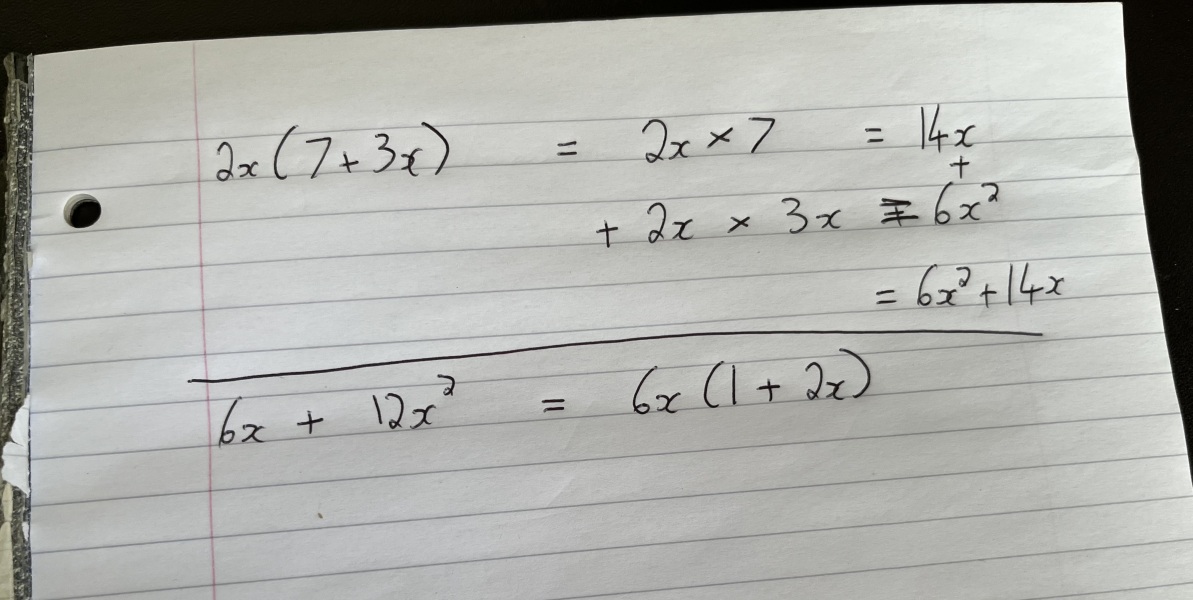 2x(7+3x) = 2x × 7 = 14x
+
+ 2x × 3x = 6x²
= 6x²+14x
6x + 12x² = 6x(1 + 2x)